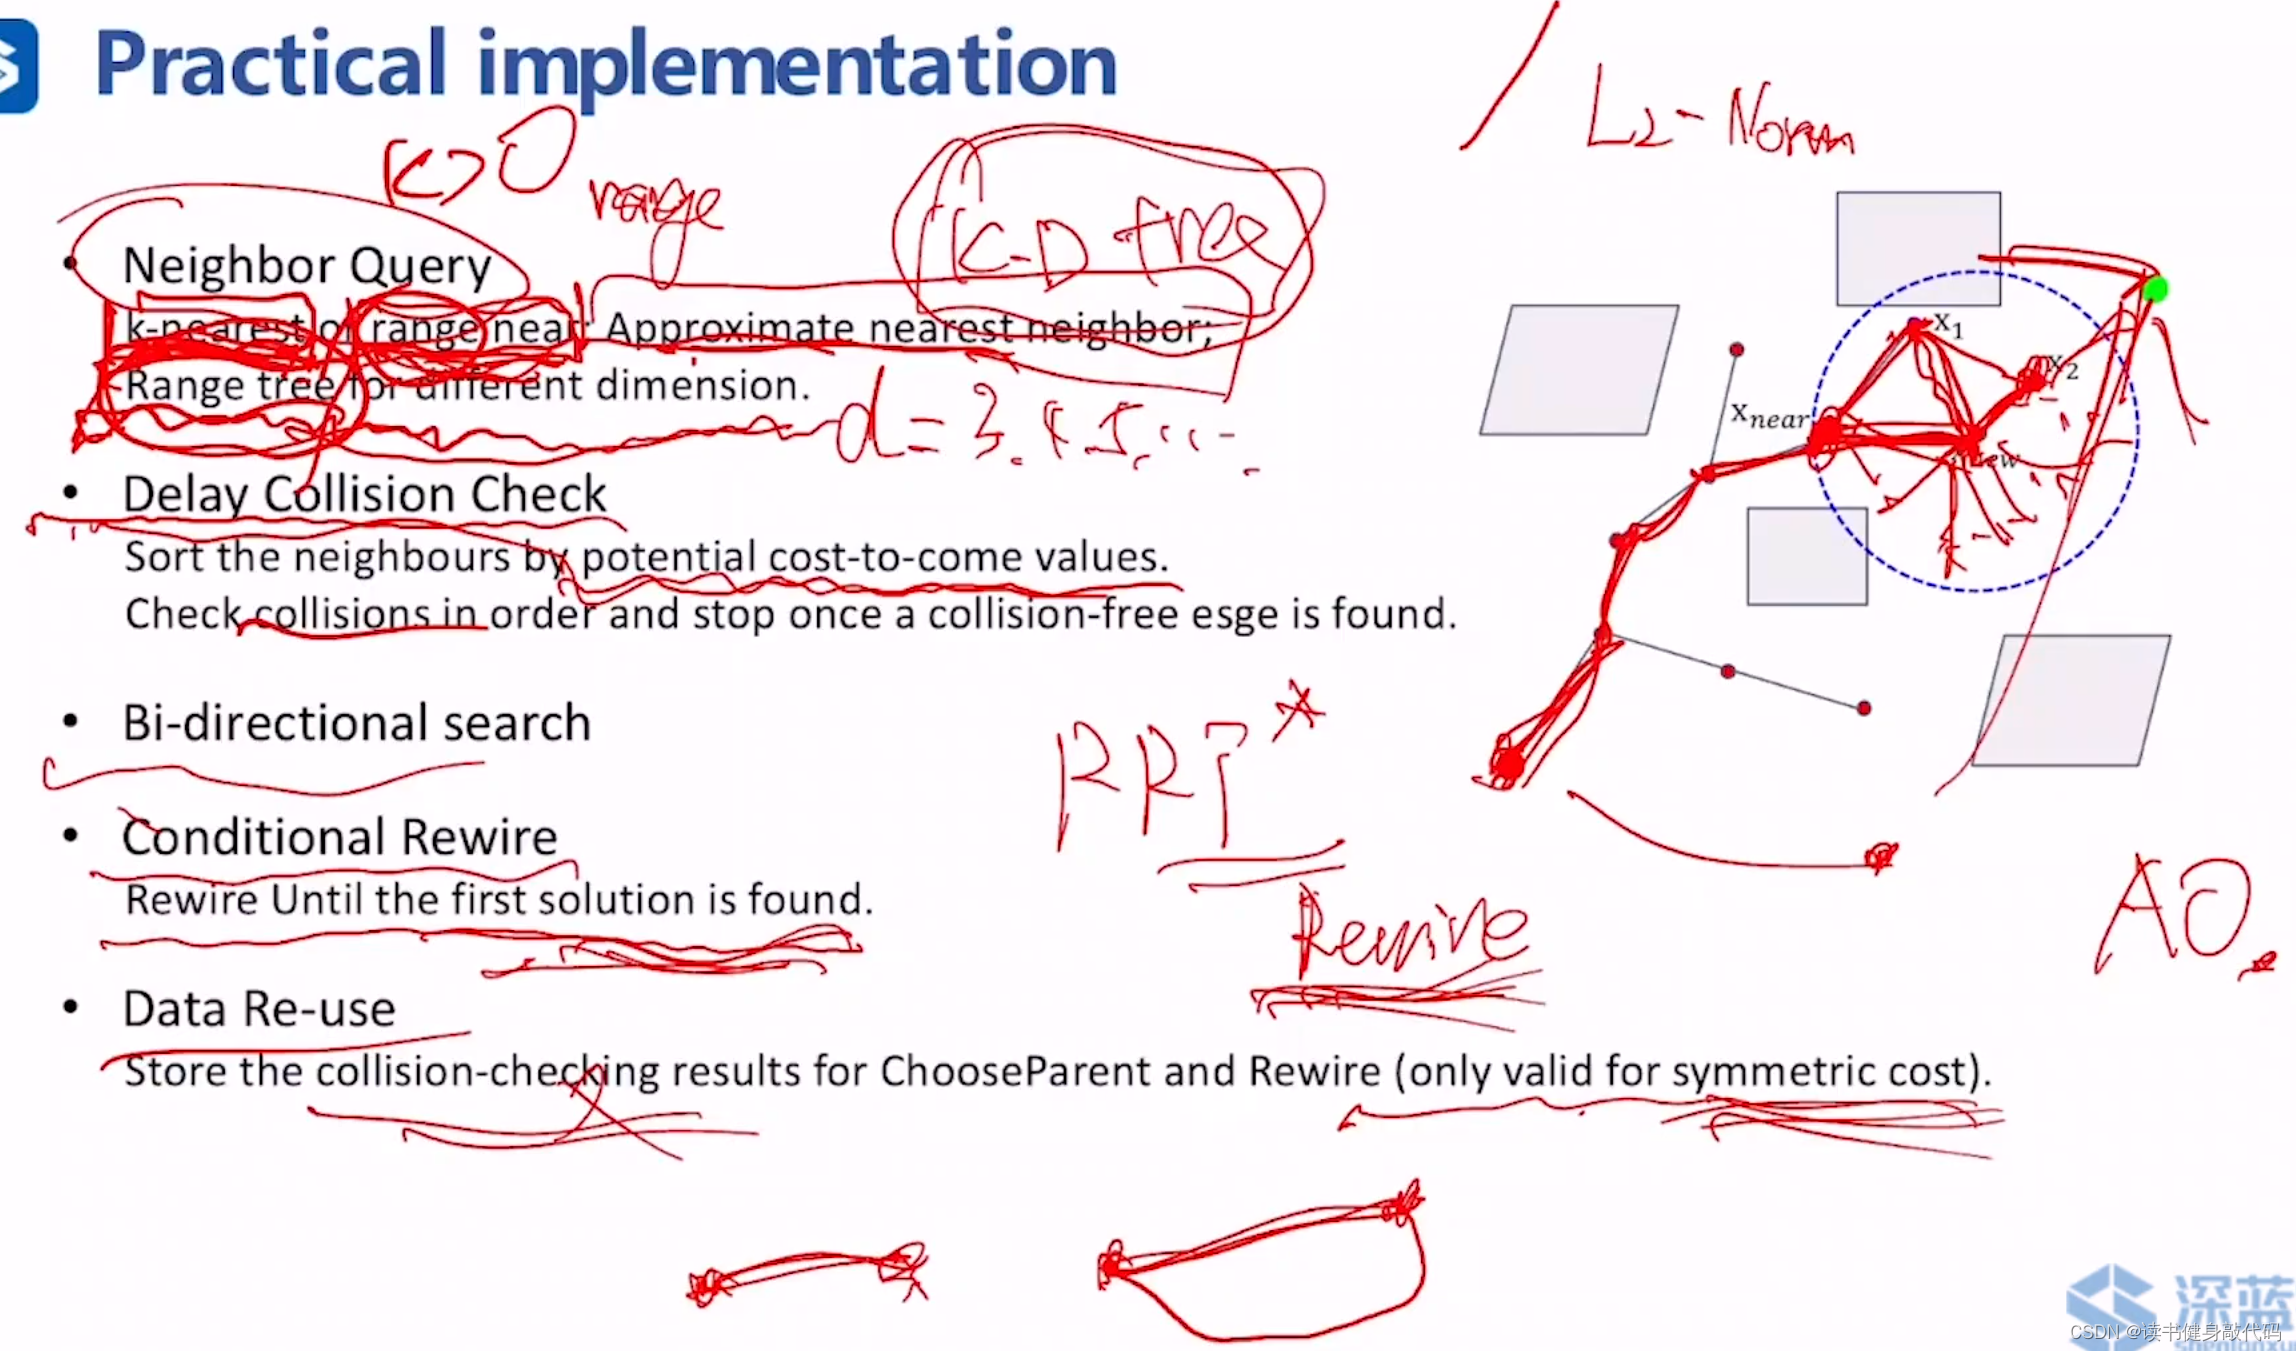 Practical implementation
L2-Norm
K>0
range
K-D tree
• Neighbor Query
k-nearest or range near; Approximate nearest neighbor;
Range tree for different dimension.
d=3.4.5.
• Delay Collision Check
Sort the neighbours by potential cost-to-come values.
Check collisions in order and stop once a collision-free esge is found.
• Bi-directional search
• Conditional Rewire
Rewire Until the first solution is found.
• Data Re-use
Store the collision-checking results for ChooseParent and Rewire (only valid for symmetric cost).
x1
x2
xnear
RRT*
Rewire
AO
深蓝
CSDN @读书健身敲代码